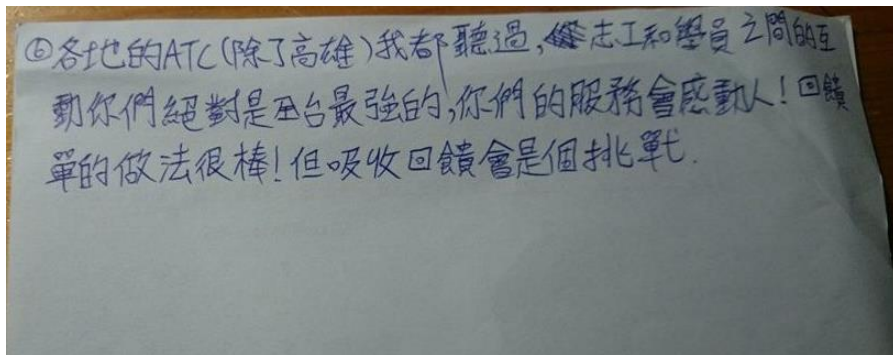 ⑥各地的ATC(除了高雄)我都聽過,志工和學員之間的互
動你們絕對是全台最強的,你們的服務會感動人!回饋
單的做法很棒!但吸收回饋會是個挑戰.